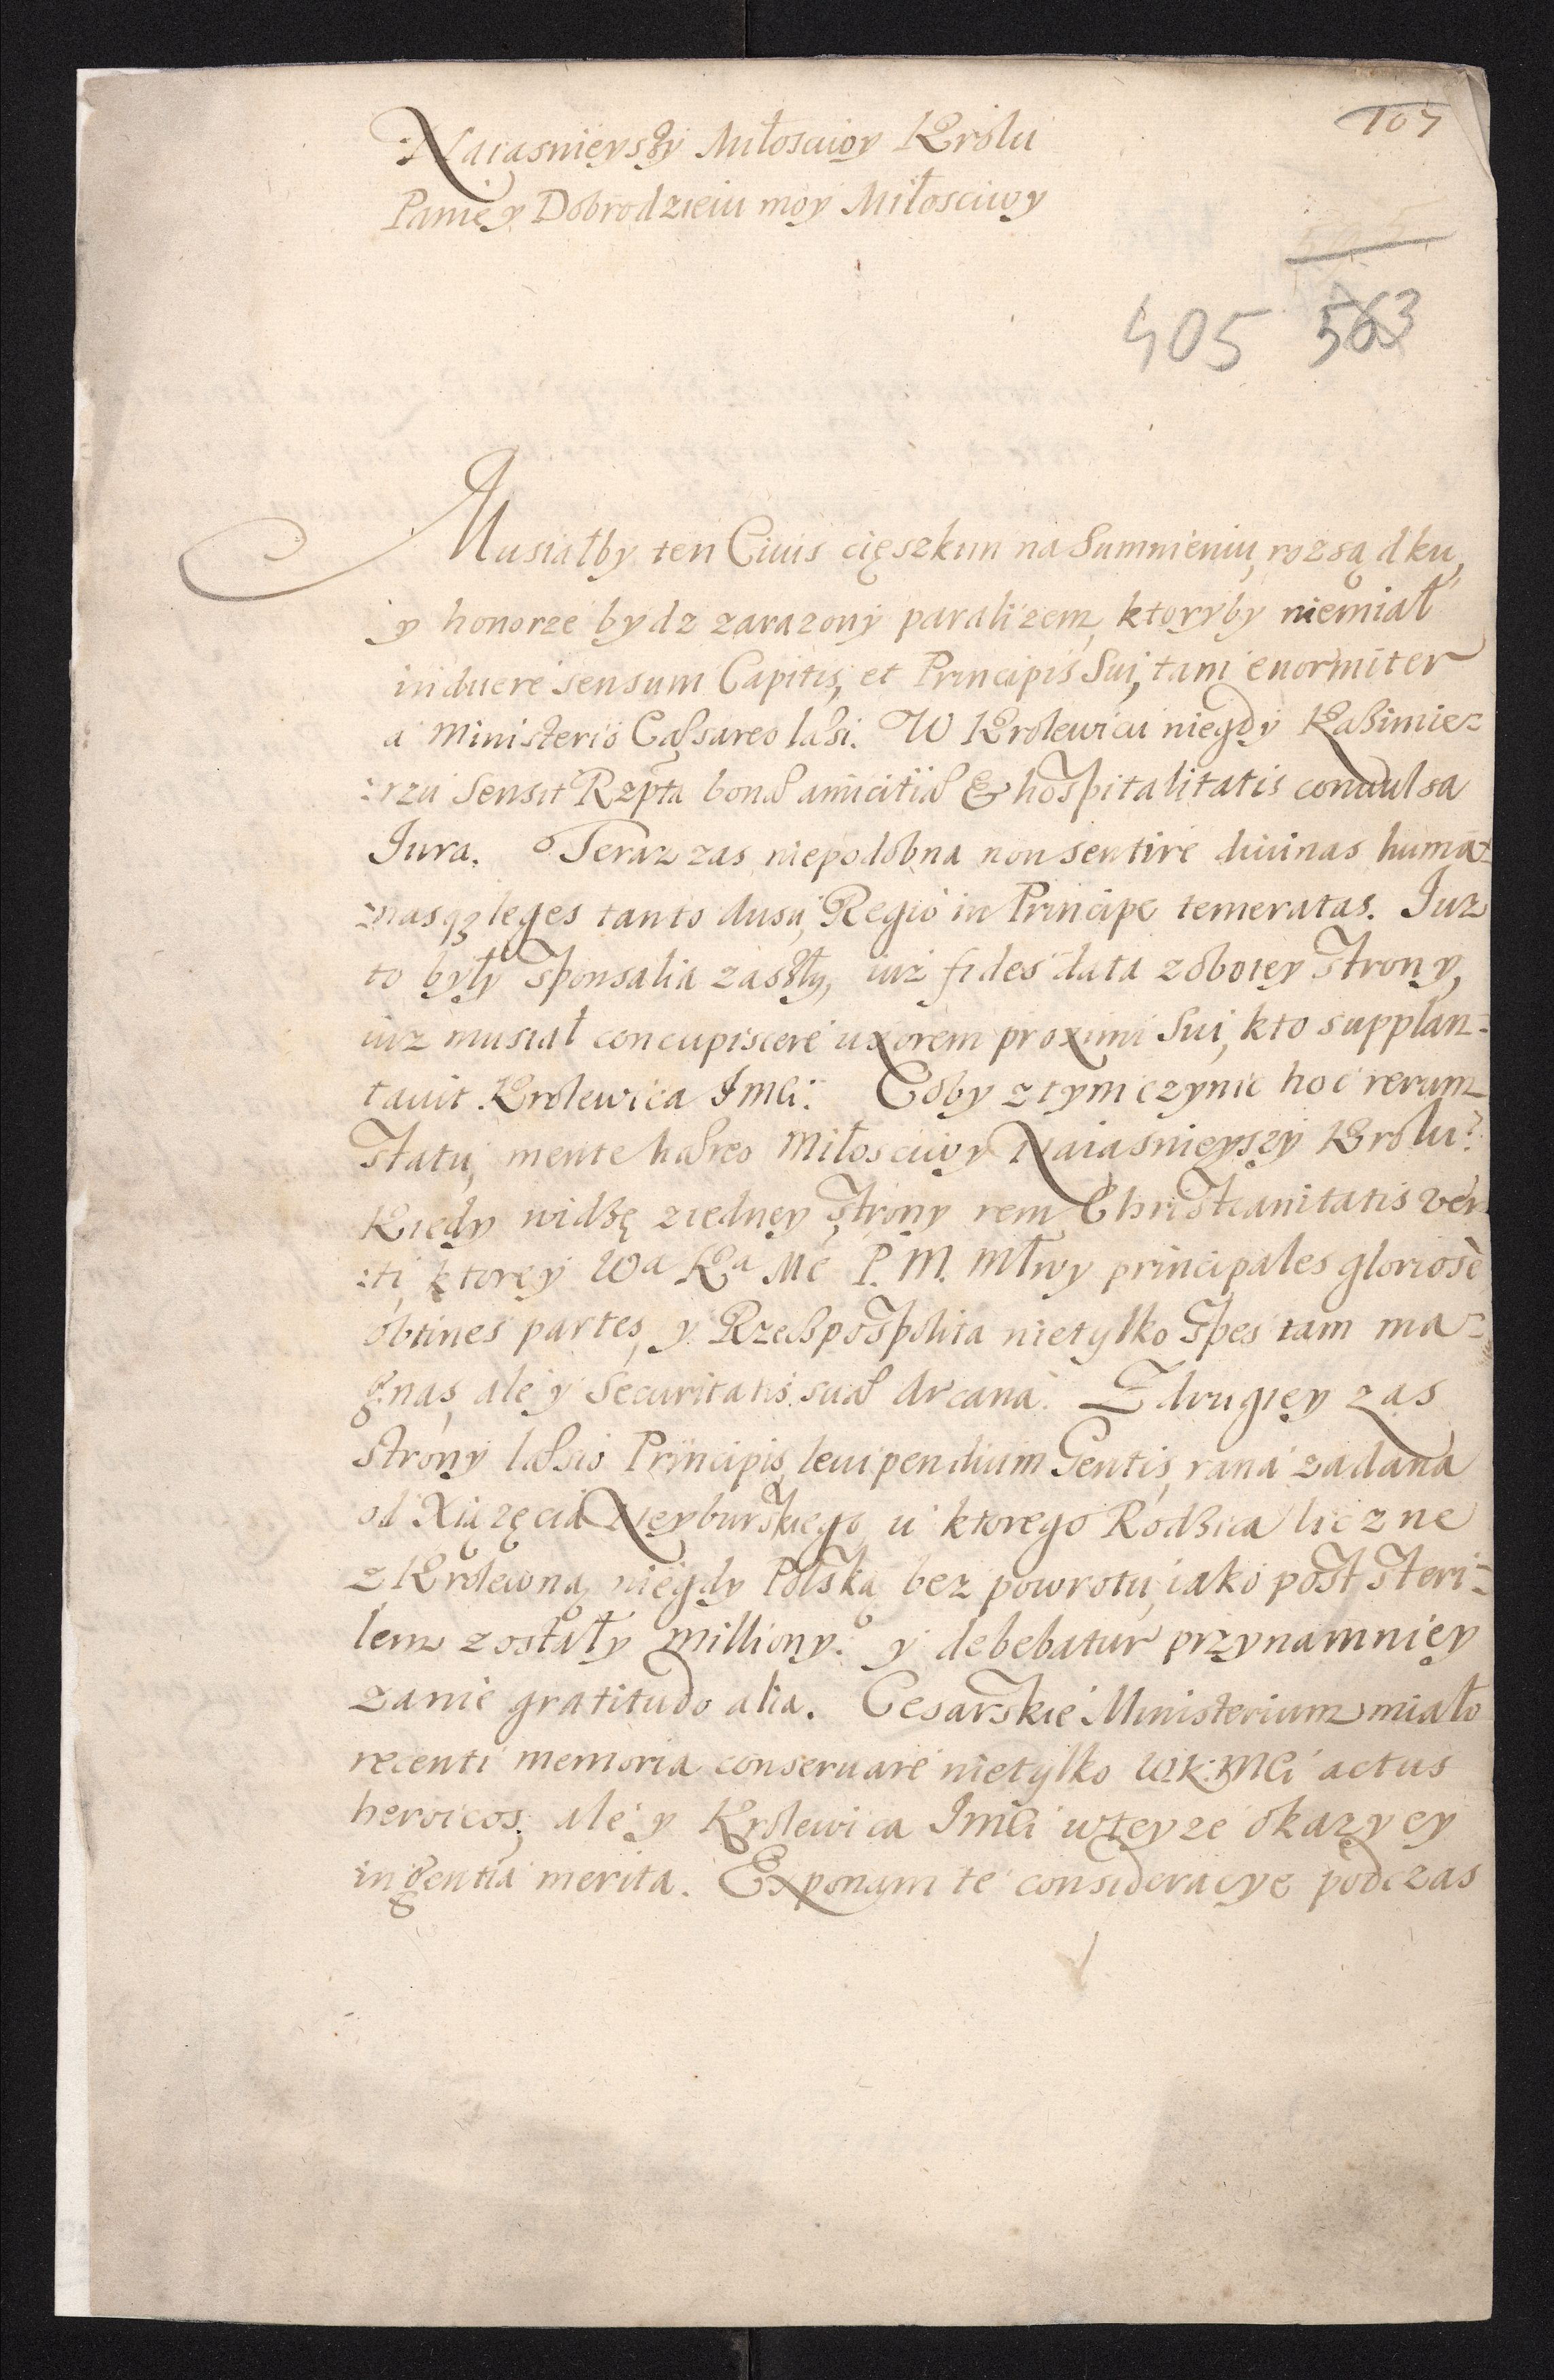 107
Naiasnieyszy Miłosciwy Krolu
Panie y Dobrodzieiu moy Miłosciwy
405 563
Musiałby ten Ciuis cięszkim na Sumnieniu, rozsądku,
y honorze bydz zarazony paraliżem, ktoryby niemiał
induere sensum Capitis, et Principis Sui, tam enormiter
a Ministerio Cæsareo læsi. W Krolewicu niegdy Kaźimie=
=rzu Sensit Rzpta bonæ amicitiæ & hospitalitatis conuulsa
Iura. Teraz zas niepodobna non sentire diuinas huma=
=nasq3 leges tanto ausu, Regio in Principe temeratas. Iuz
to były Sponsalia zaszły, iuż fides data z oboiey Strony,
iuz musiał concupiscere uxorem proximi Sui, kto supplan=
tauit Krolewica Imći. Coby z tym czynic hoc rerum
Statu, mente hæreo Miłosciwy Naiasnieyszy Krolu?
Kiedy widzę z iedney strony rem Christianitatis ver=
=ti, ktorey Wa Ka Mć P. M. Młwy principales gloriosè
obtines partes, y Rzeczpospolita nietylko Spes tam ma=
gnas, ale y Securitatis suæ Arcana. Z drugiey zas
strony læsio Principis, leuipendium Gentis, rana zadana
od Xiążęcia Neyburskiego, u ktorego Rodzica liczne
z Krolewną niegdy Polską bez powrotu, iako post steri=
lem zostały Milliony. y debebatur przynamniey
zanie gratitudo alia. Cesarskie Ministerium miało
recenti memoria conseruare nietylko W.K.Mći actus
heroicos, ale y Krolewica Imći w teyze okazyey
ingentia merita. Exponam te consideracye podczas